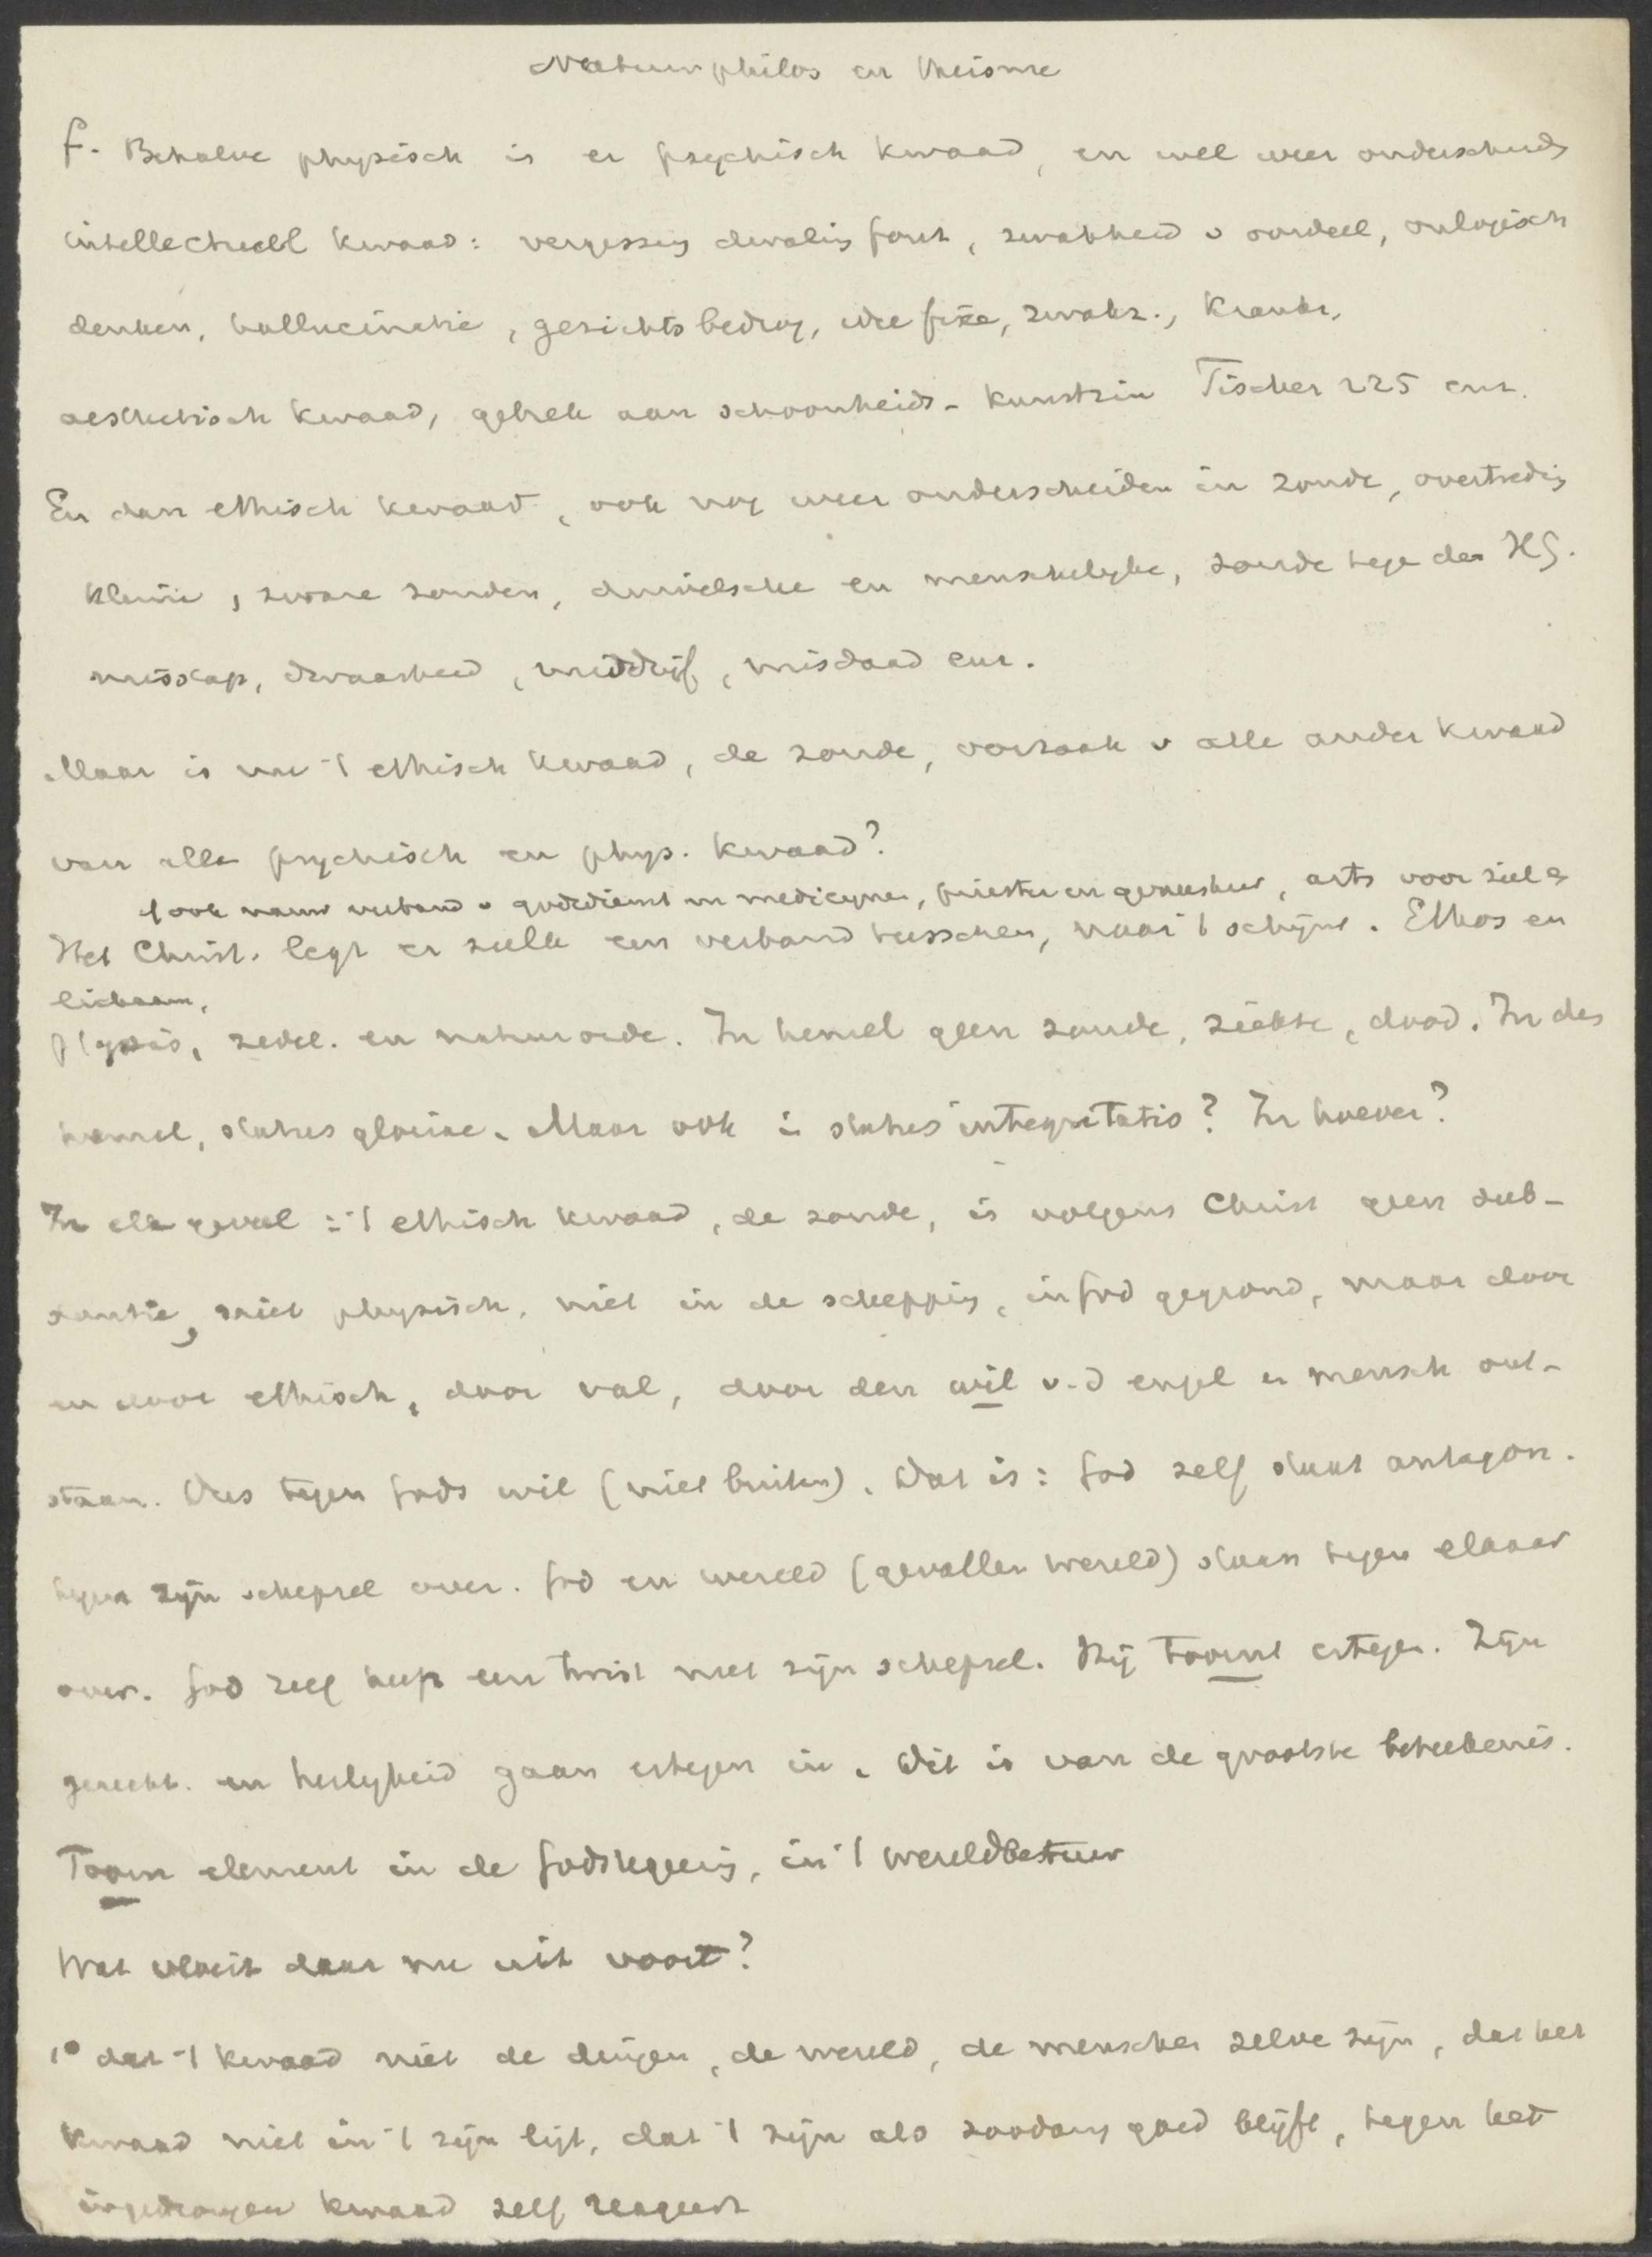 Natuurphilos en theisme
f. Behalve physisch is er psychisch kwaad, en wel weer onderscheids
intellectueel kwaad: vergissing dwaling fout, zwakheid v oordeel, onlogisch
denken, hallucinatie, gezichtsbedrog, idee fixe, zwakz., krankz.
aesthetisch kwaad, gebrek aan schoonheids- kunstzin Tischer 225 enz.
En dan ethisch kwaad, ook nog weer onderscheiden in zonde, overtreding
kleine, zware zonden, duivelsche en menschelyke, zonde tege den HG.
misstap, dwaasheid, misdrijf, misdaad enz.
Maar is nu 't ethisch kwaad, de zonde, oorzaak v alle ander kwaad
van alle psychisch en phys. kwaad?
ook nauw verband v godsdienst en medicynen, priester en geneesheer, arts voor ziel en
Het Christ. legt er zulk een verband tusschen, naar 't schijnt. Ethos en
lichaam.
physis, zedel. en natuurorde. In hemel geen zonde, ziekte, dood. In den
hemel, status gloriae. Maar ook in status integritatis? In hoever?
In elk geval: 't ethisch kwaad, de zonde, is volgens Christ geen sub-
stantie, niet physisch, niet in de schepping, in God gegrond, maar door
en door ethisch, door val, door den wil v. d engel en mensch ont-
staan. Dus tegen Gods wil (niet buiten). Dat is: God zelf staat antagon.
tegen zijn schepsel over. God en wereld (gevallen wereld) staan tegen elkaar
over. God zelf heeft een twist met zijn schepsel. Hij toornt ertegen. Zijn
gerecht. en heilygheid gaan ertegen in. Dit is van de grootste beteekenis.
Toorn element in de Godsregering, in 't wereldbestuur
Wat vloeit daar nu uit voort?
1° dat 't kwaad niet de dingen, de wereld, de menschen zelve zijn, dat het
kwaad niet in 't zijn ligt, dat 't zijn als zoodanig goed blijft, tegen het
ingedrongen kwaad zelf reageert